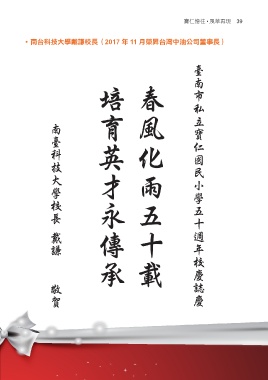 寶仁傑往・風華再現 39
・南台科技大學戴謙校長（2017 年 11 月榮昇台灣中油公司董事長）
臺南市私立寶仁國民小學五十週年校慶誌慶
春風化雨五十載
培育英才永傳承
南臺科技大學校長 戴謙 敬賀